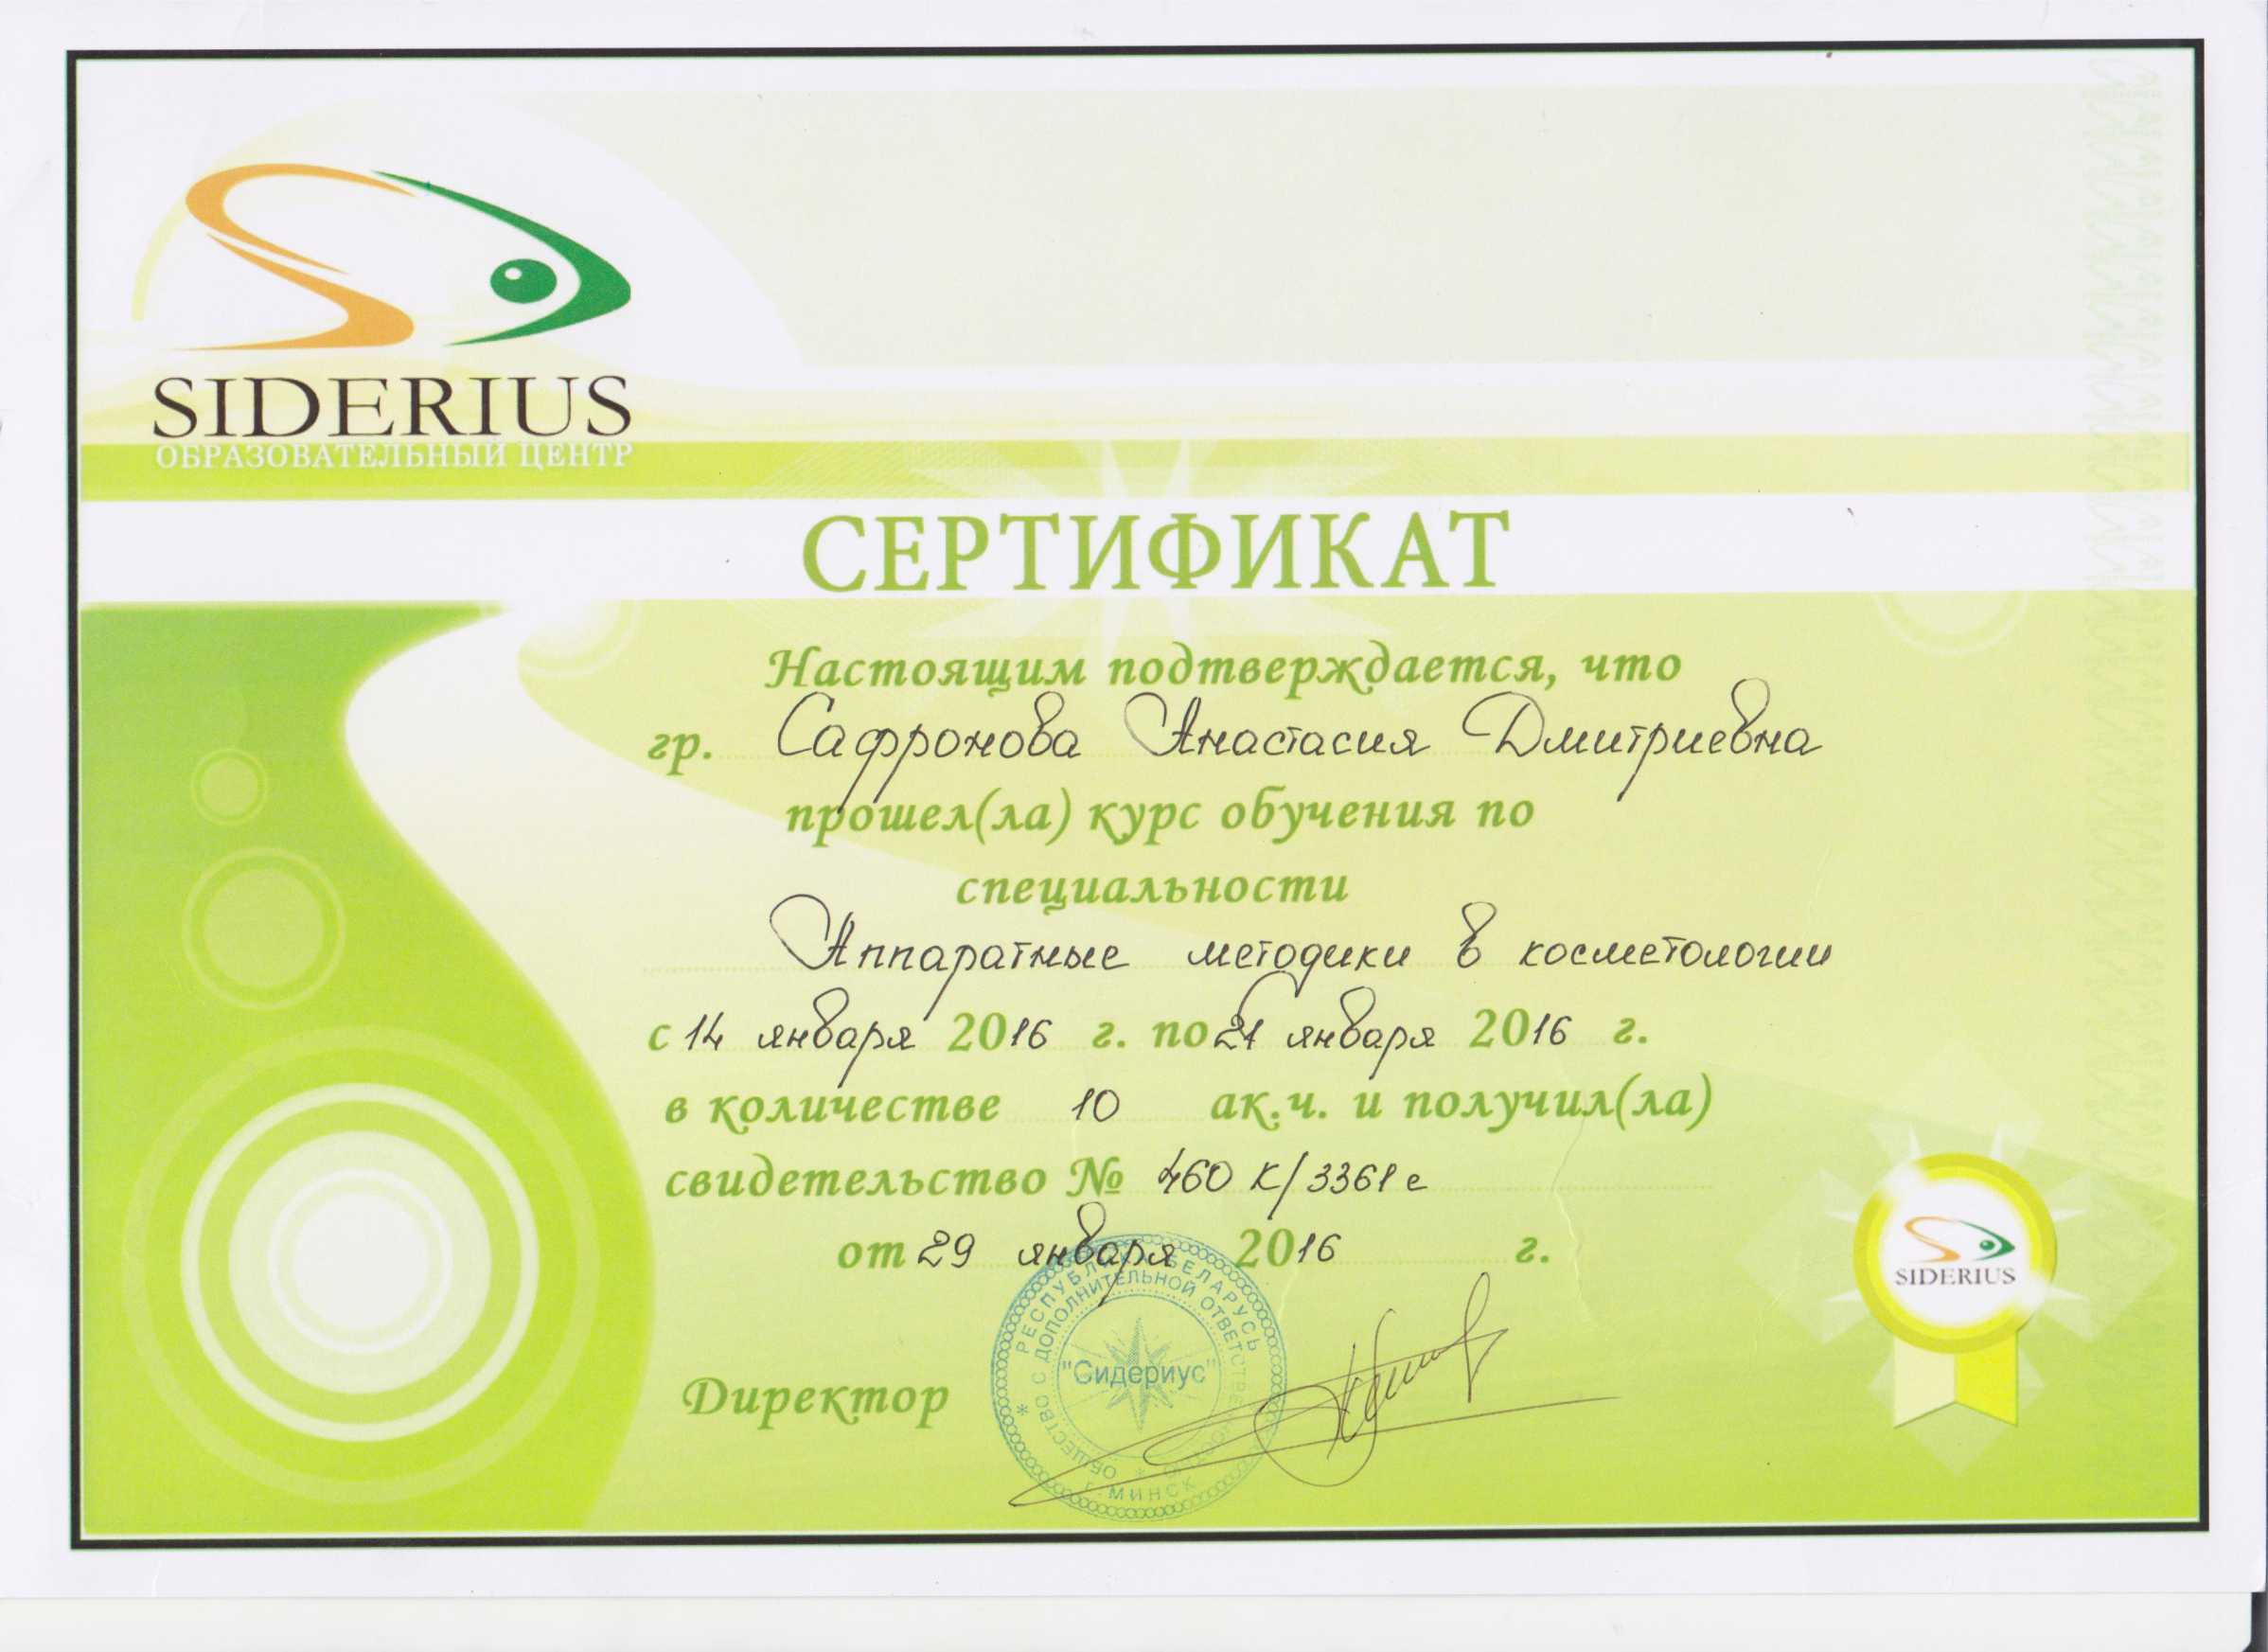 SIDERIUS
ОБРАЗОВАТЕЛЬНЫЙ ЦЕНТР
СЕРТИФИКАТ
Настоящим подтверждается, что
гр. Сафронова Анастасия Дмитриевна
прошел(ла) курс обучения по
специальности
Аппаратные методики в косметологии
с 14 января 2016 г. по 21 января 2016 г.
в количестве 10 ак.ч. и получил(ла)
свидетельство № 460 К/3361 е
от 29 января 2016 г.
Директор
РЕСПУБЛИКА БЕЛАРУСЬ
ОБЩЕСТВО С ДОПОЛНИТЕЛЬНОЙ
"Сидериус"
Г. МИНСК
SIDERIUS